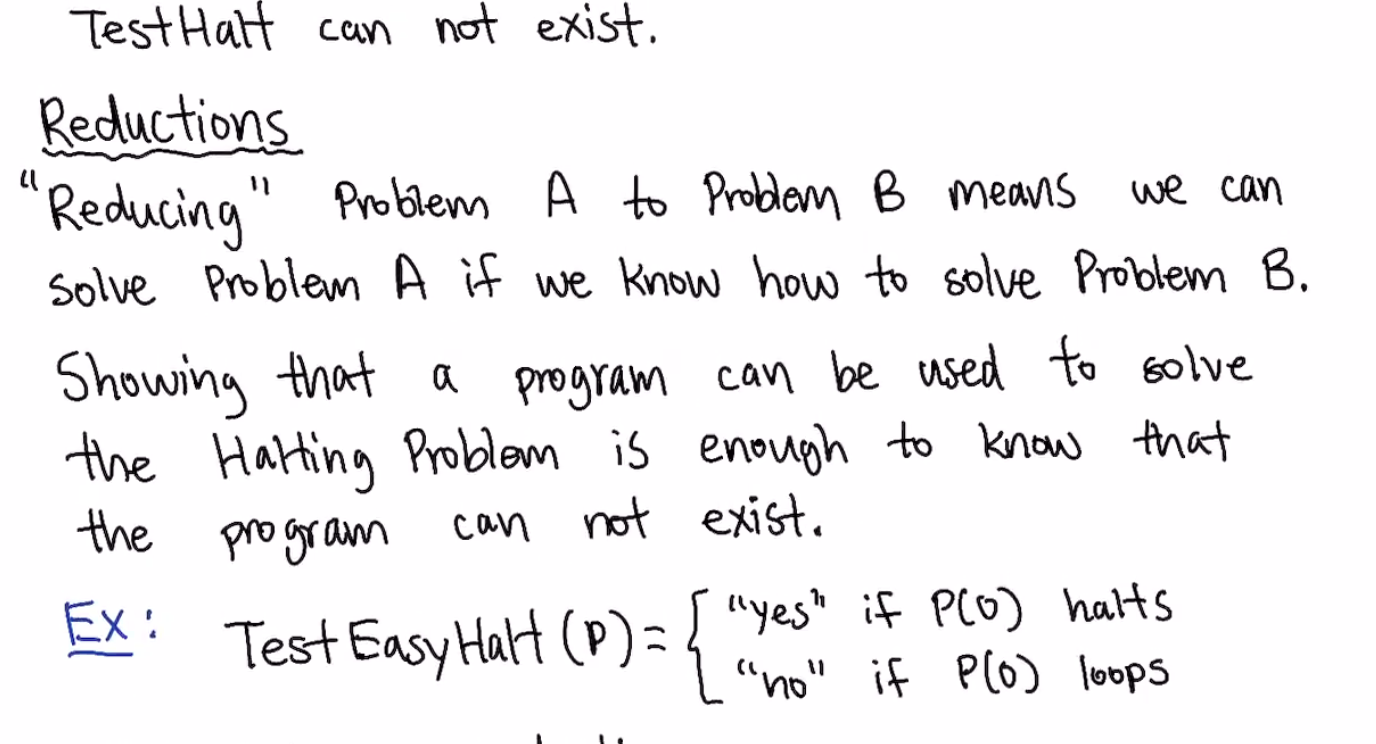 TestHalt can not exist.
Reductions
"Reducing" Problem A to Problem B means we can
solve Problem A if we know how to solve Problem B.
Showing that a program can be used to solve
the Halting Problem is enough to know that
the program can not exist.
Ex: TestEasyHalt(P) = { "yes" if P(0) halts
"no" if P(0) loops